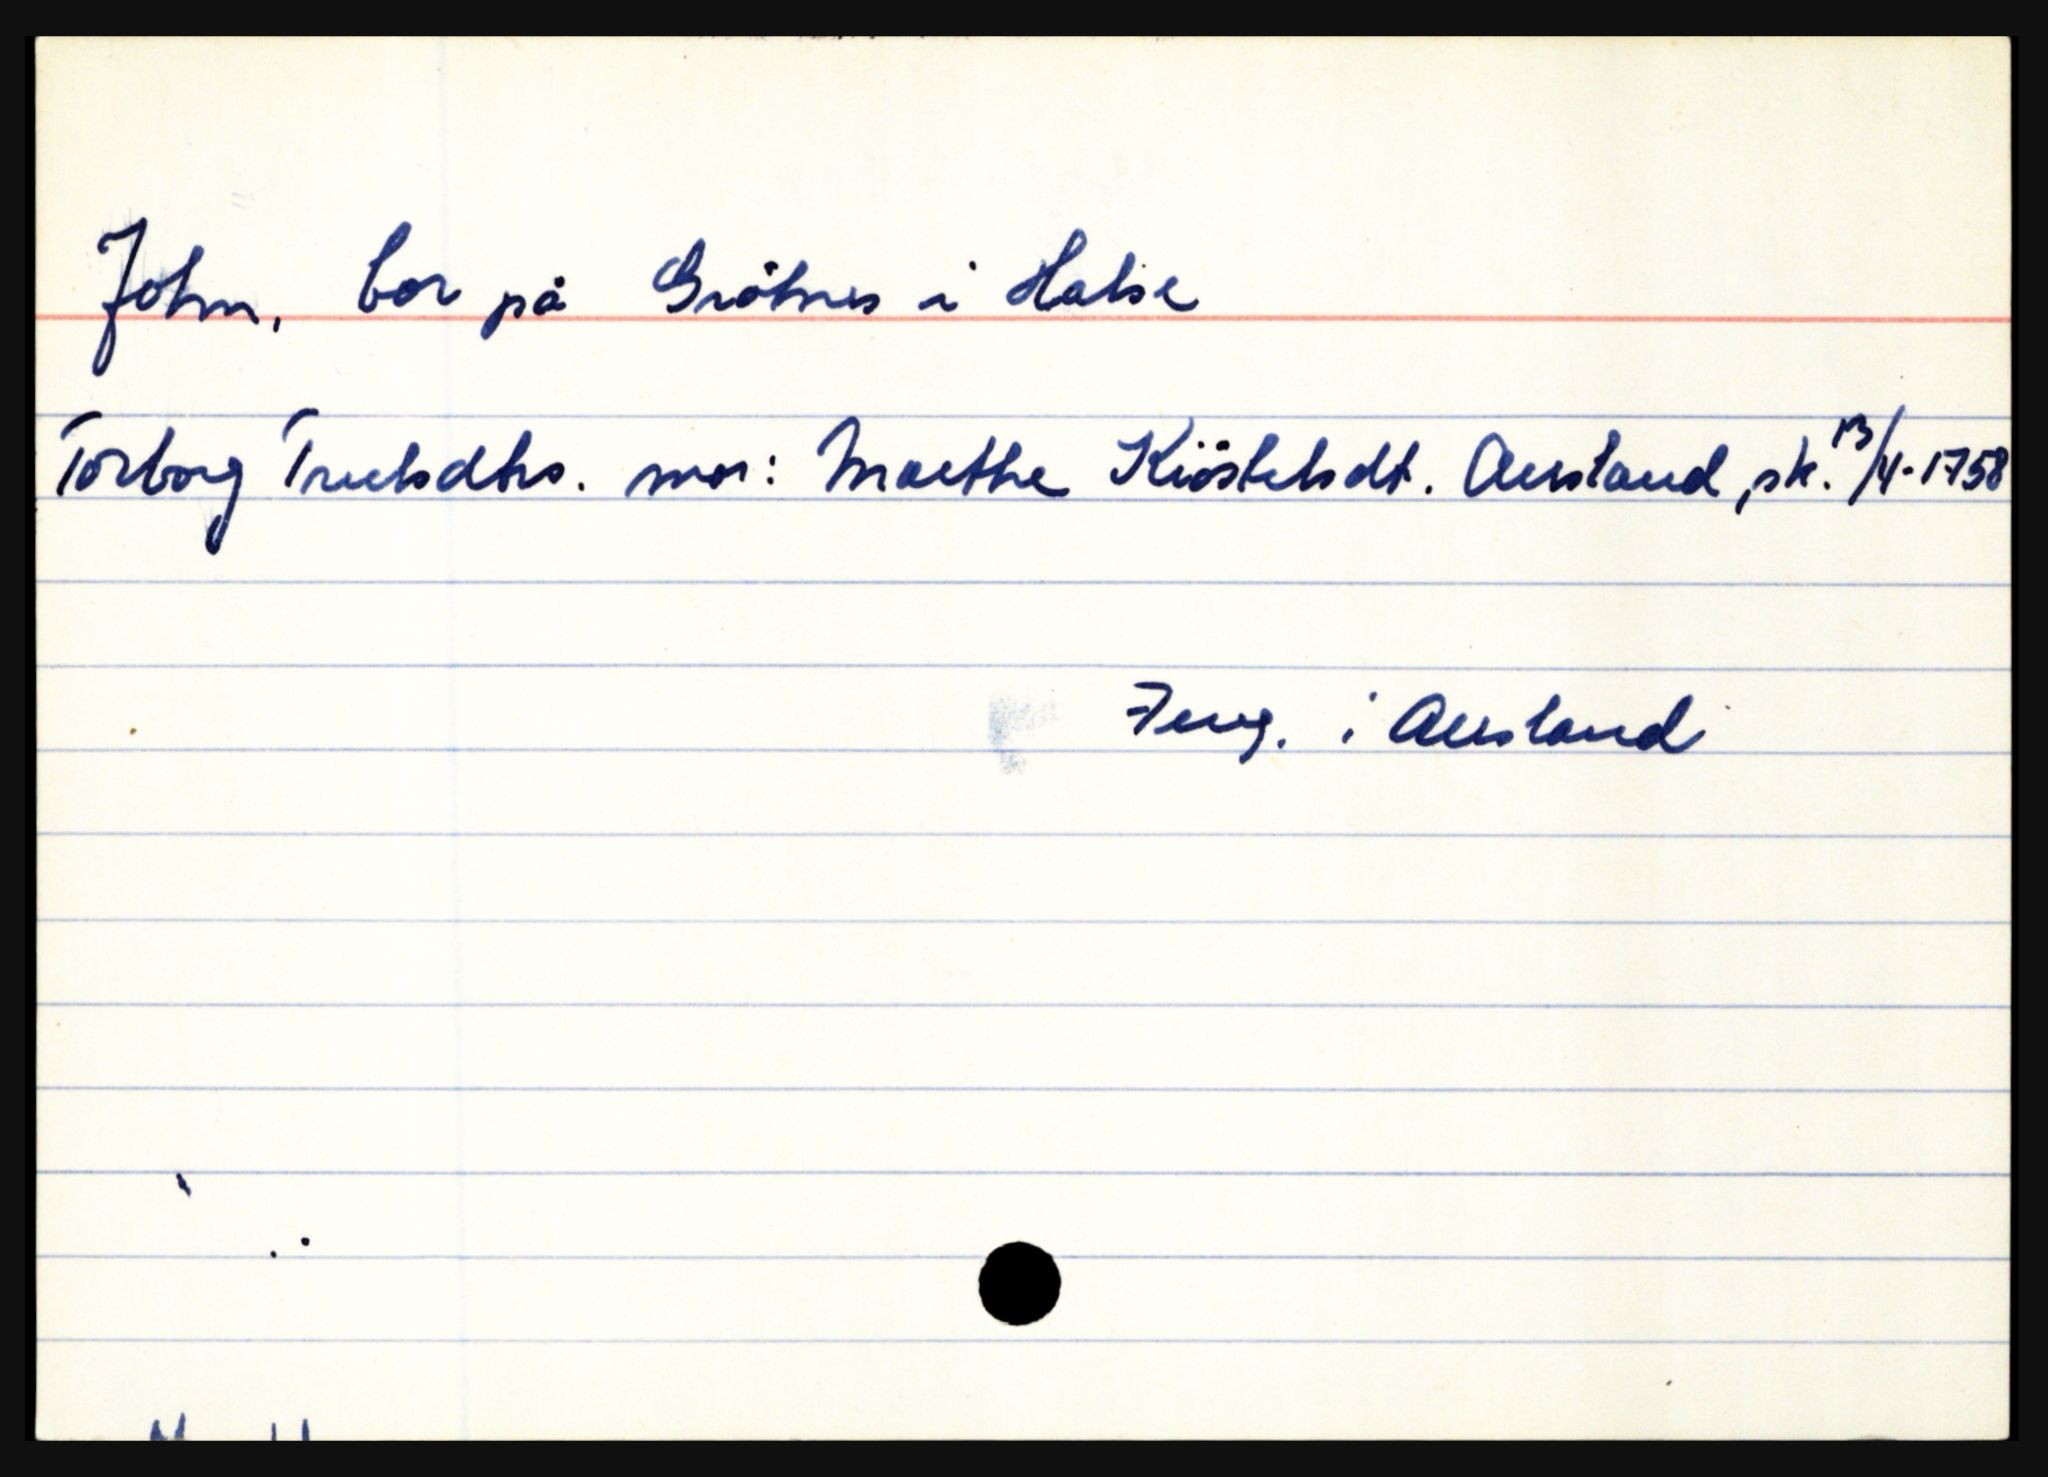 John, bor på Gröhnes i Halse
Torborg Truelsdtrs. mor: Marthe Kiöstelsdt. Aurstand, sk. 13/4-1758
Jeng. i Aurstand